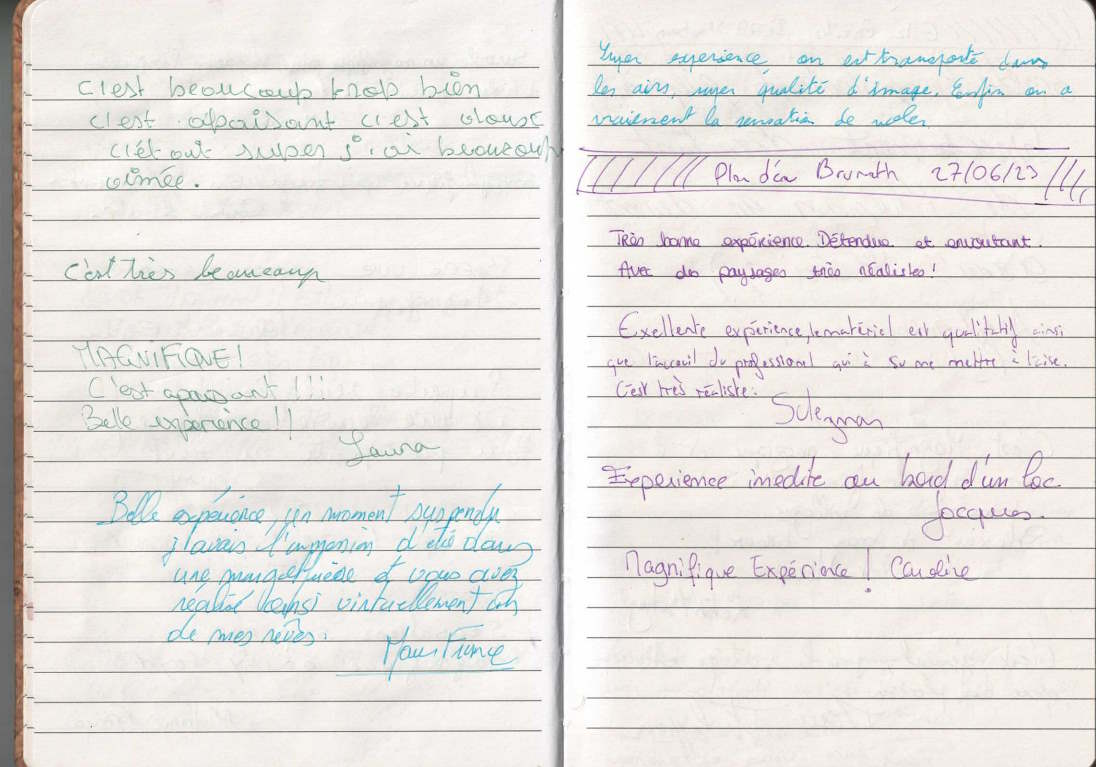 c'est beaucoup trop bien
c'est apaisant c'est douse
c'étout super j'ai beaucoup
aimée.
c'est très beaucoup
MAGNIFIQUE!
C'est apaisant !!!
Belle experience !!
Laura
Belle expérience, un moment suspendu
j'avais l'impression d'être dans
une mongolfière et vous avez
réalisé ainsi virtuellement un
de mes rêves.
Marie France
Super experience, on est transporté dans
les airs, super qualité d'image. Enfin on a
vraiement la sensation de voler
Plan d'eau Brumath 27/06/23
Très bonne expérience. Détendue et envoutant.
Avec des paysages très réalistes!
Exellente expérience, le matériel est qualitatif ainsi
que l'acceuil du professional qui à su me mettre à l'aise.
C'est très réaliste.
Suleyman
Experience inedite au bord d'un lac.
Jacques.
Magnifique Expérience ! Caroline